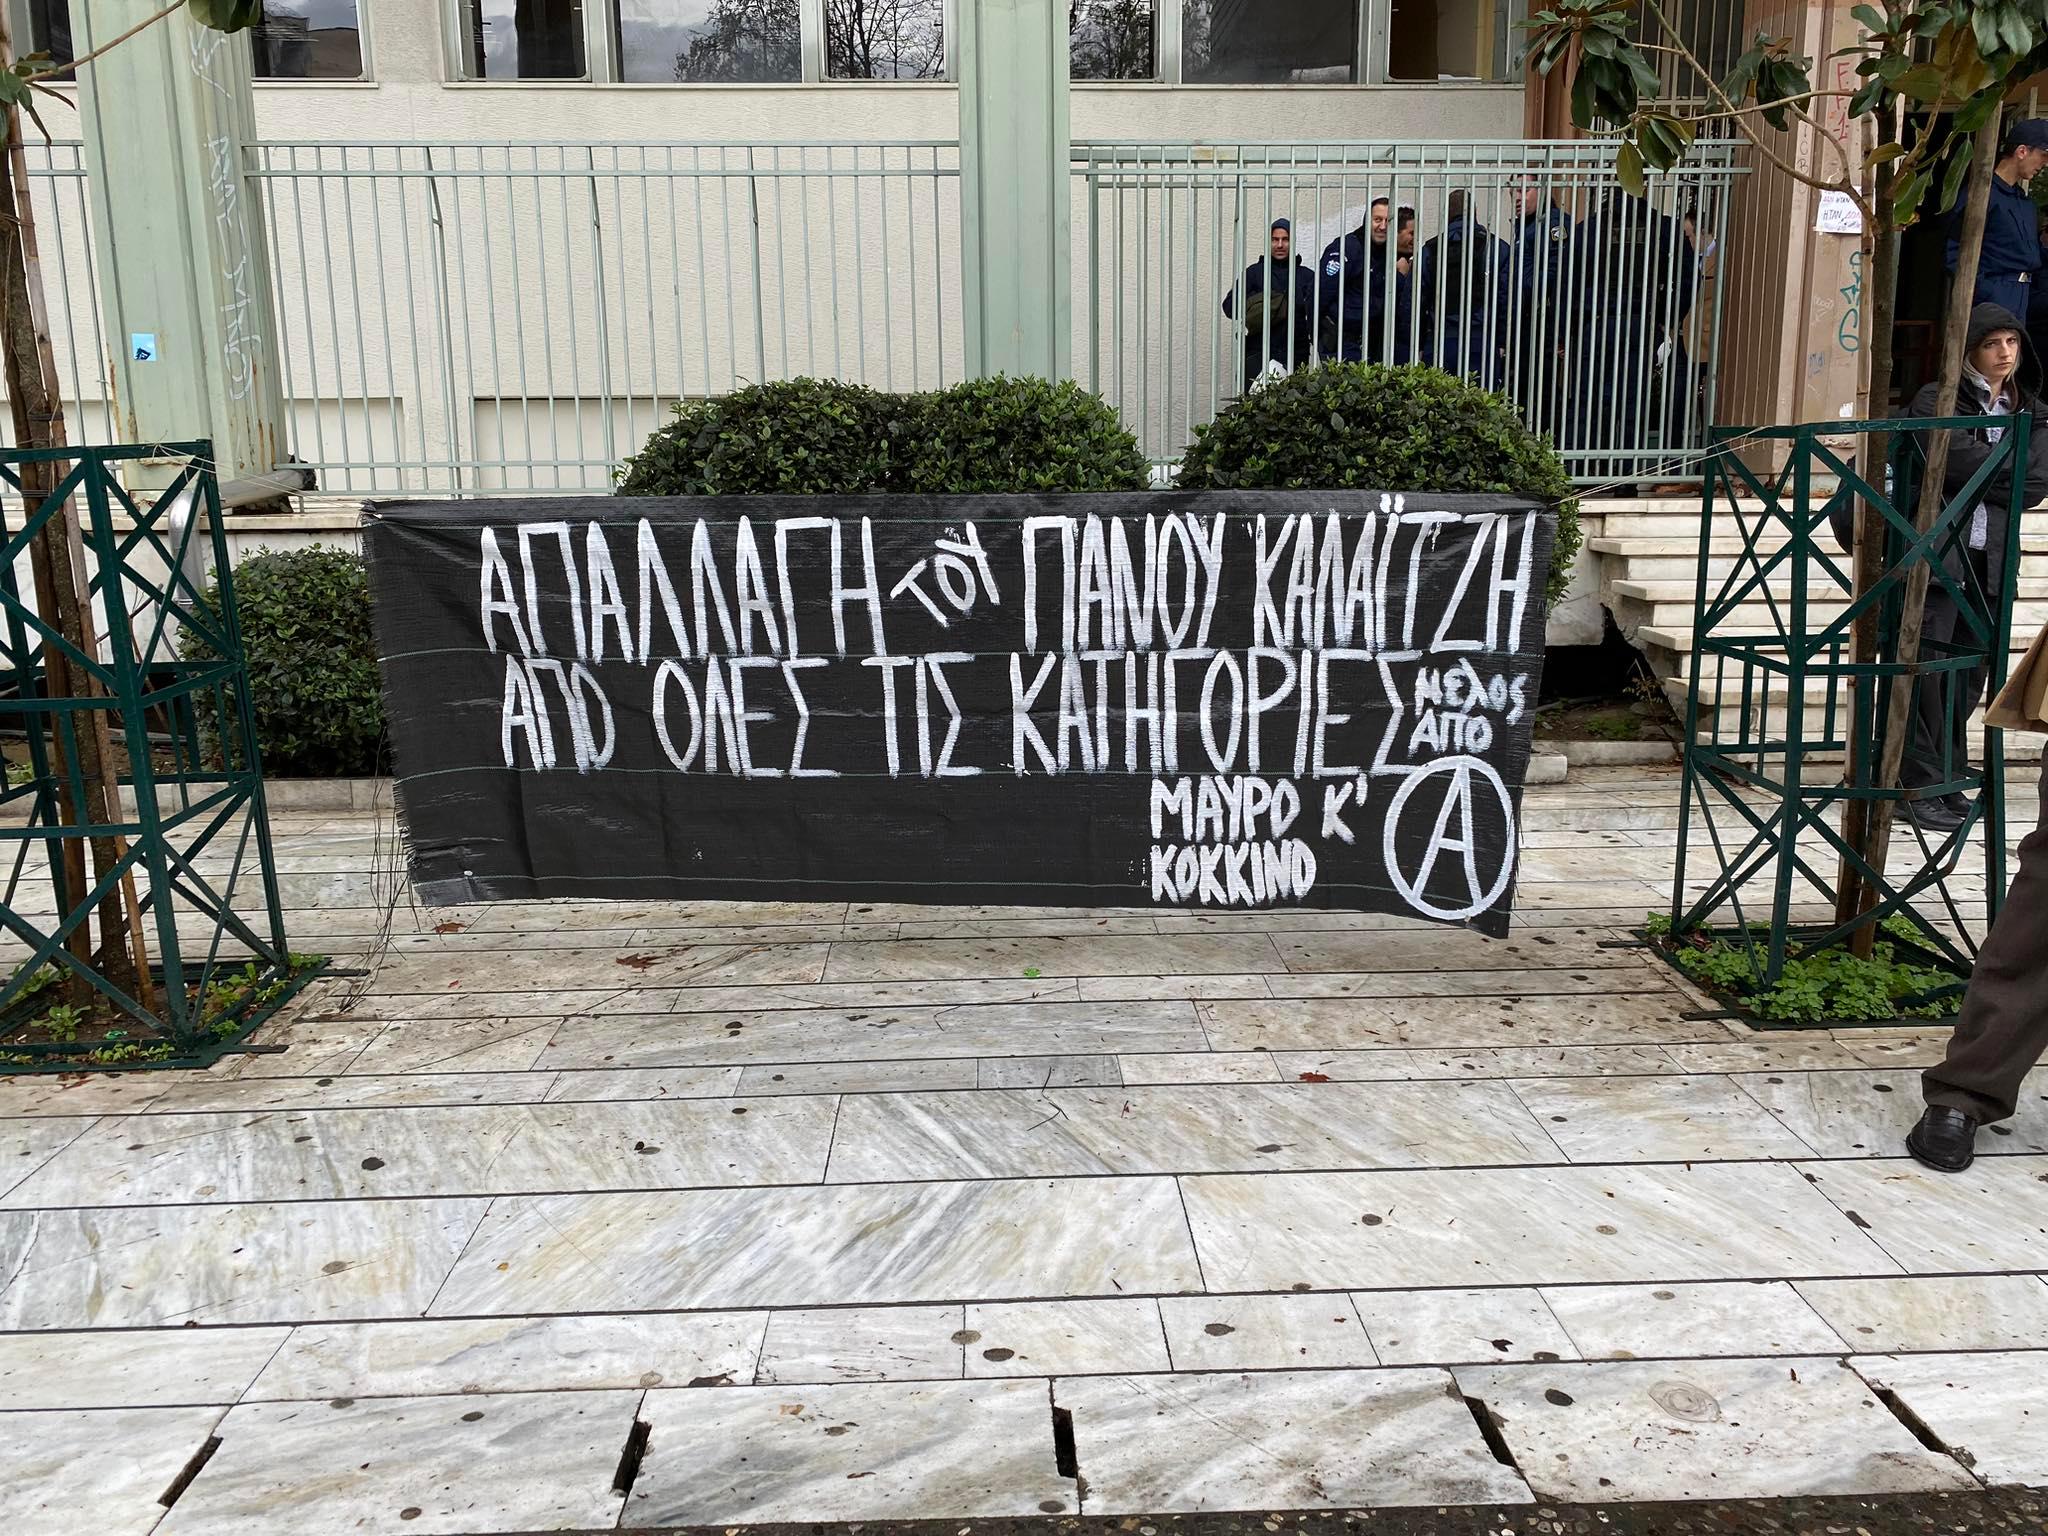 ΑΠΑΛΛΑΓΗ ΤΟΥ ΠΑΝΟΥ ΚΑΛΑΪΤΖΗ
ΑΠΟ ΟΛΕΣ ΤΙΣ ΚΑΤΗΓΟΡΙΕΣ
Μελος
ΑΠΟ
ΜΑΥΡΟ Κ'
ΚΟΚΚΙΝΟ
Α
ΔΕΝ ΗΤΑΝ
ΗΤΑΝ